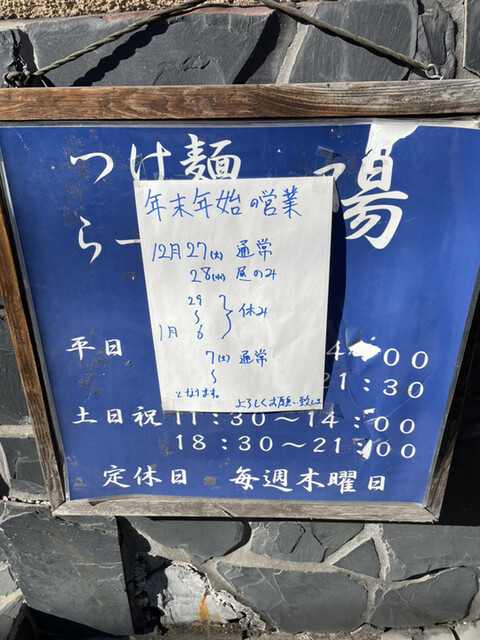 つけ麺
らー
陽
年末年始の営業
12月27(火) 通常
28(水) 昼のみ
29
〜
1月 6
休み
7(土) 通常
〜
となります。
よろしくお願い致しま
平日
4:00
21:30
土日祝 11:30〜14:00
18:30〜21:00
定休日 毎週木曜日